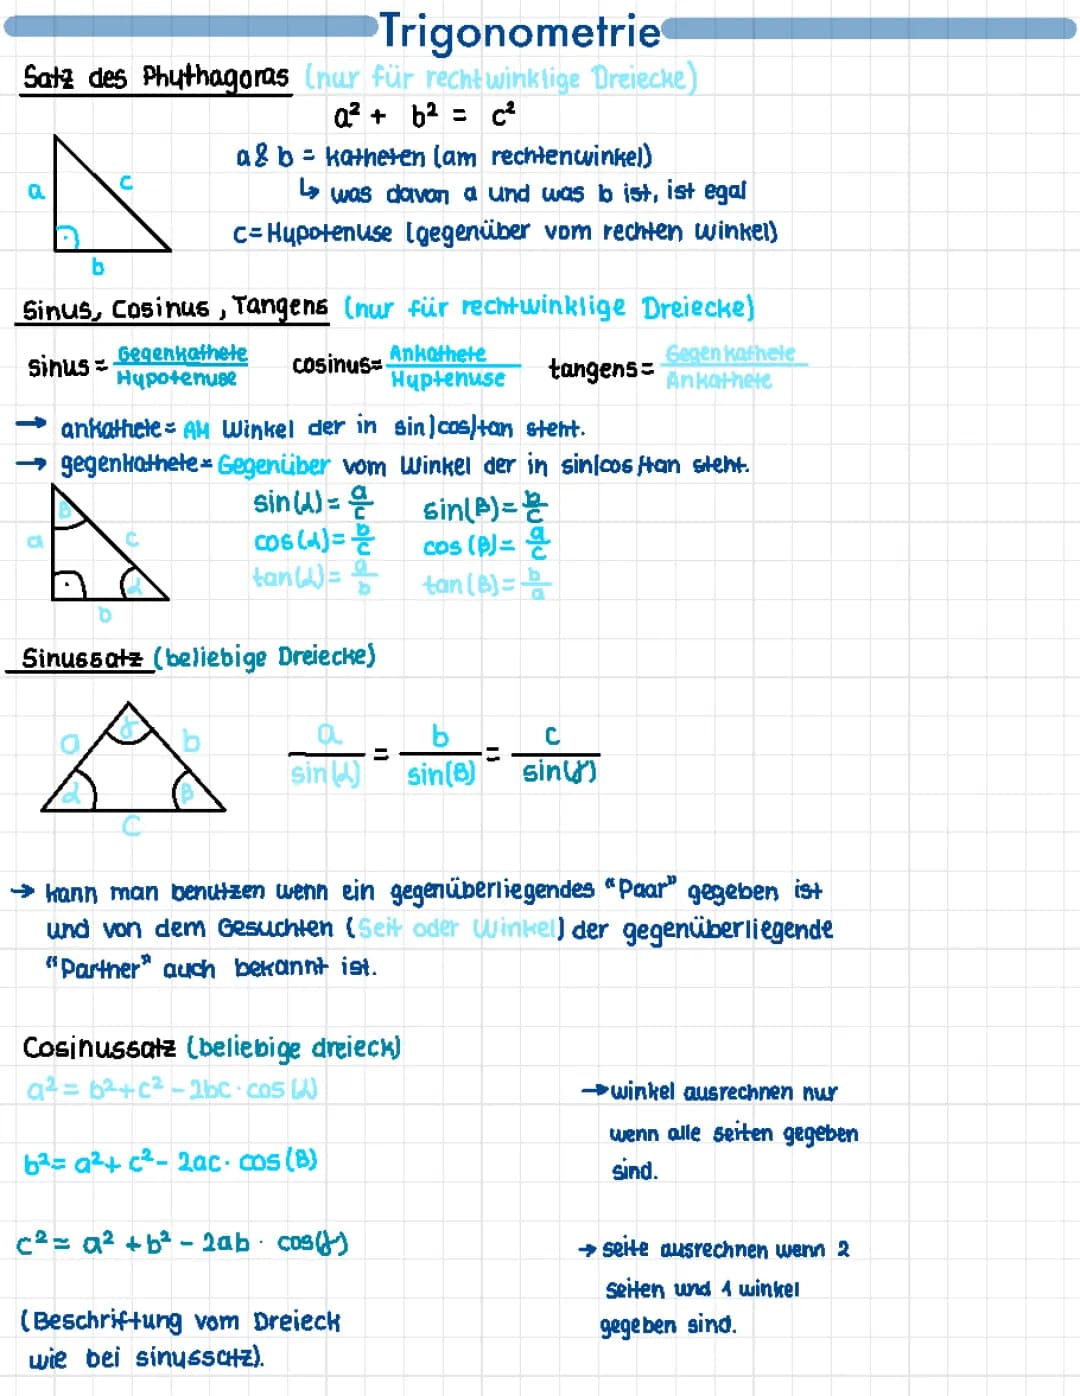 Trigonometrie
Satz des Phythagoras (nur für rechtwinklige Dreiecke)
a² + b² = c²
a & b = katheten (am rechtenwinkel)
↳ was davon a und was b ist, ist egal
c = Hypotenuse (gegenüber vom rechten winkel)
a
c
b
Sinus, Cosinus, Tangens (nur für rechtwinklige Dreiecke)
sinus = Gegenkathete / Hypotenuse cosinus = Ankathete / Hyptenuse tangens = Gegenkathete / Ankathete
→ ankathete = AM Winkel der in sin|cos|tan steht.
→ gegenkathete = Gegenüber vom Winkel der in sin|cos|tan steht.
sin(α) = a/c sin(β) = b/c
cos(α) = b/c cos(β) = a/c
tan(α) = a/b tan(β) = b/a
β
a
c
α
b
Sinussatz (beliebige Dreiecke)
γ
a
b
α
β
c
a / sin(α) = b / sin(β) = c / sin(γ)
→ kann man benutzen wenn ein gegenüberliegendes "Paar" gegeben ist
und von dem Gesuchten (Seit oder Winkel) der gegenüberliegende
"Partner" auch bekannt ist.
Cosinussatz (beliebige dreieck)
a² = b² + c² - 2bc · cos(α)
b² = a² + c² - 2ac · cos(β)
c² = a² + b² - 2ab · cos(γ)
(Beschriftung vom Dreieck
wie bei sinussatz).
→ winkel ausrechnen nur
wenn alle seiten gegeben
sind.
→ seite ausrechnen wenn 2
seiten und 1 winkel
gegeben sind.